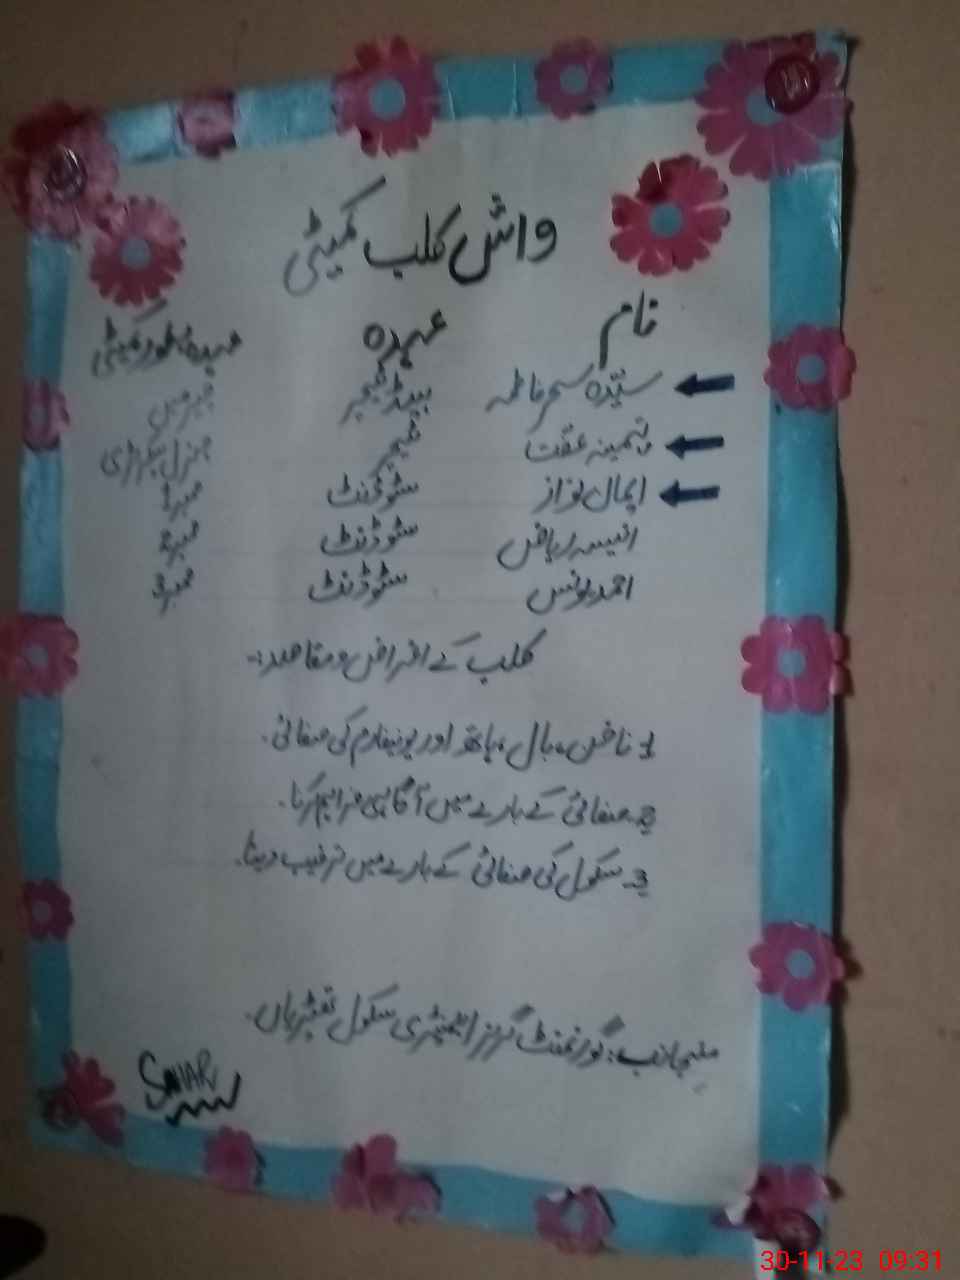 واش کلب کمیٹی
نام عہدہ عہدہ بطور کمیٹی
سیّدہ سحر فاطمہ ہیڈ ٹیچر چیئرمین
تہمینہ عفت ٹیچر جنرل سیکرٹری
ایمال نواز سٹوڈنٹ ممبر1
انیسہ ریاض سٹوڈنٹ ممبر2
احمد یونس سٹوڈنٹ ممبر3
کلب کے اغراض و مقاصد:-
1۔ ناخن، بال، ہاتھ اور یونیفارم کی صفائی۔
2۔ صفائی کے بارے میں آگاہی فراہم کرنا۔
3۔ سکول کی صفائی کے بارے میں ترغیب دینا۔
منجانب: گورنمنٹ گرلز ایلیمنٹری سکول
SAHAR
30-11-23 09:31